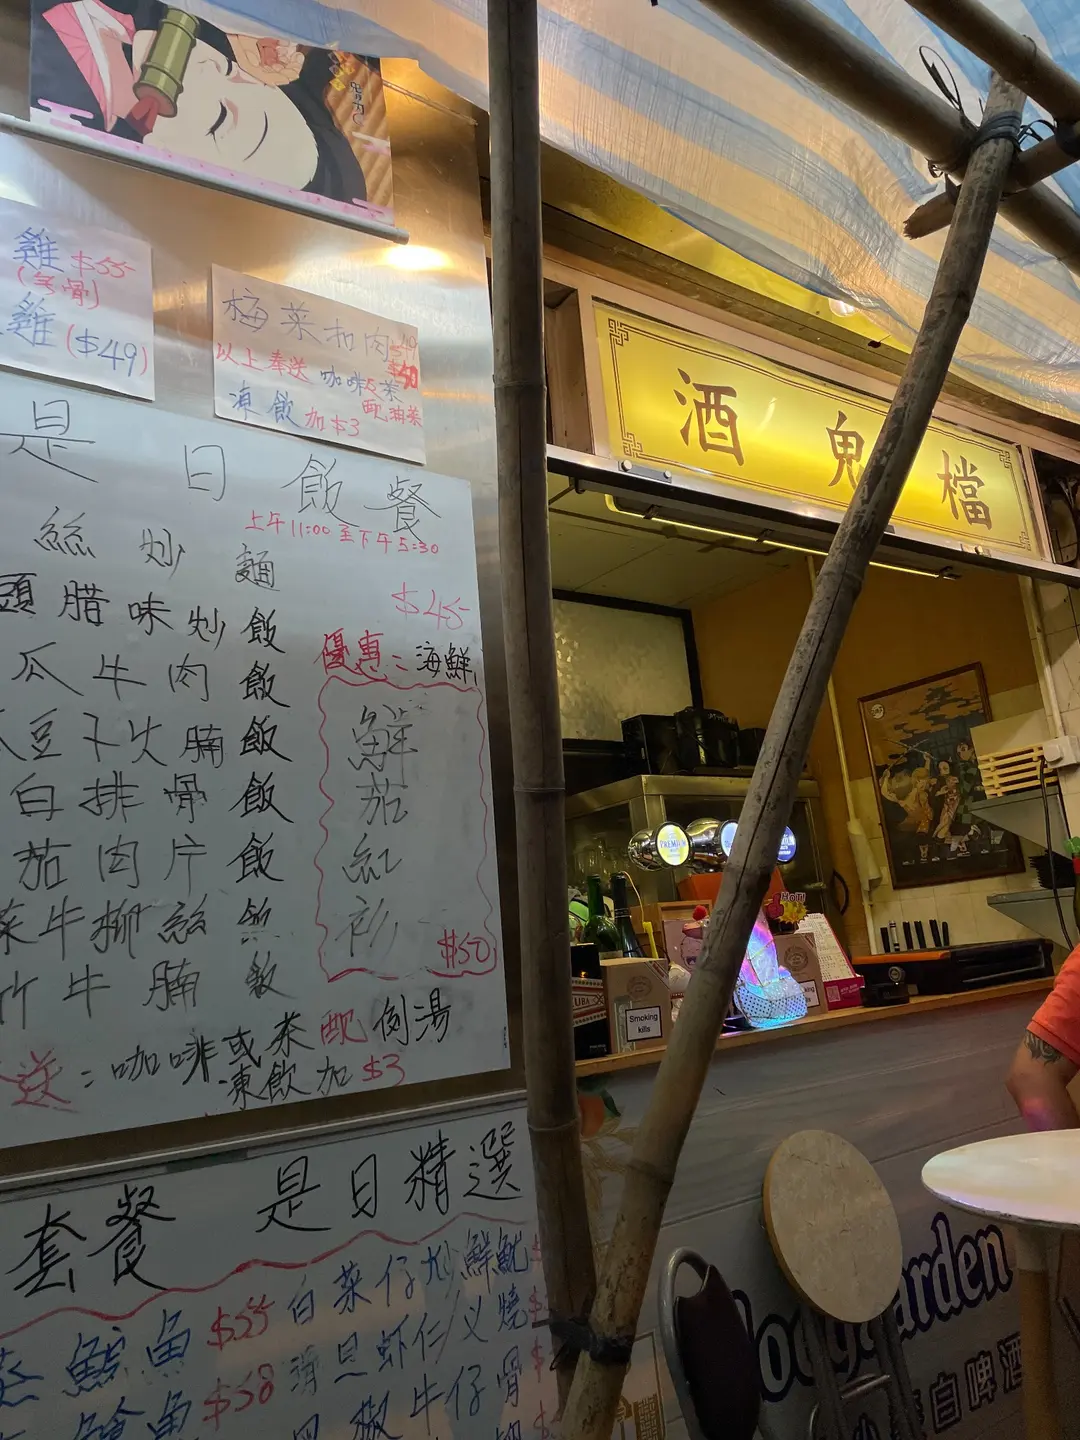 雞 $55
(去骨)
雞 ($49)
梅菜扣肉
$50
以上奉送 咖啡or茶
配油菜
凍飲加$3
是日飯餐
上午11:00至下午5:30
絲炒麵
$45
頭腊味炒飯
優惠:海鮮
瓜牛肉飯
豆卜火腩飯
白排骨飯
茄肉片飯
菜牛柳絲飯
竹牛腩飯
鮮茄紅衫
$50
送:咖啡或茶配例湯
凍飲加$3
套餐 是日精選
魚 $55 白菜仔炒鮮魷
魚 $58 滑旦蝦仁义燒
椒牛仔骨
酒鬼檔
PREMIUM
HOT!
Smoking kills
smoking kills
Hoegaarden
白啤酒